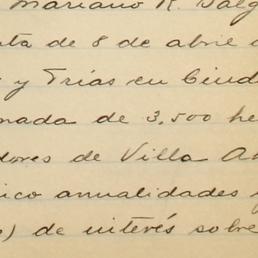 Mariano R. Salg
ta de 8 de abril
y Frías en Ciud
nada de 3,500 he
dores de Villa A
ico anualidades
) de interés sobre